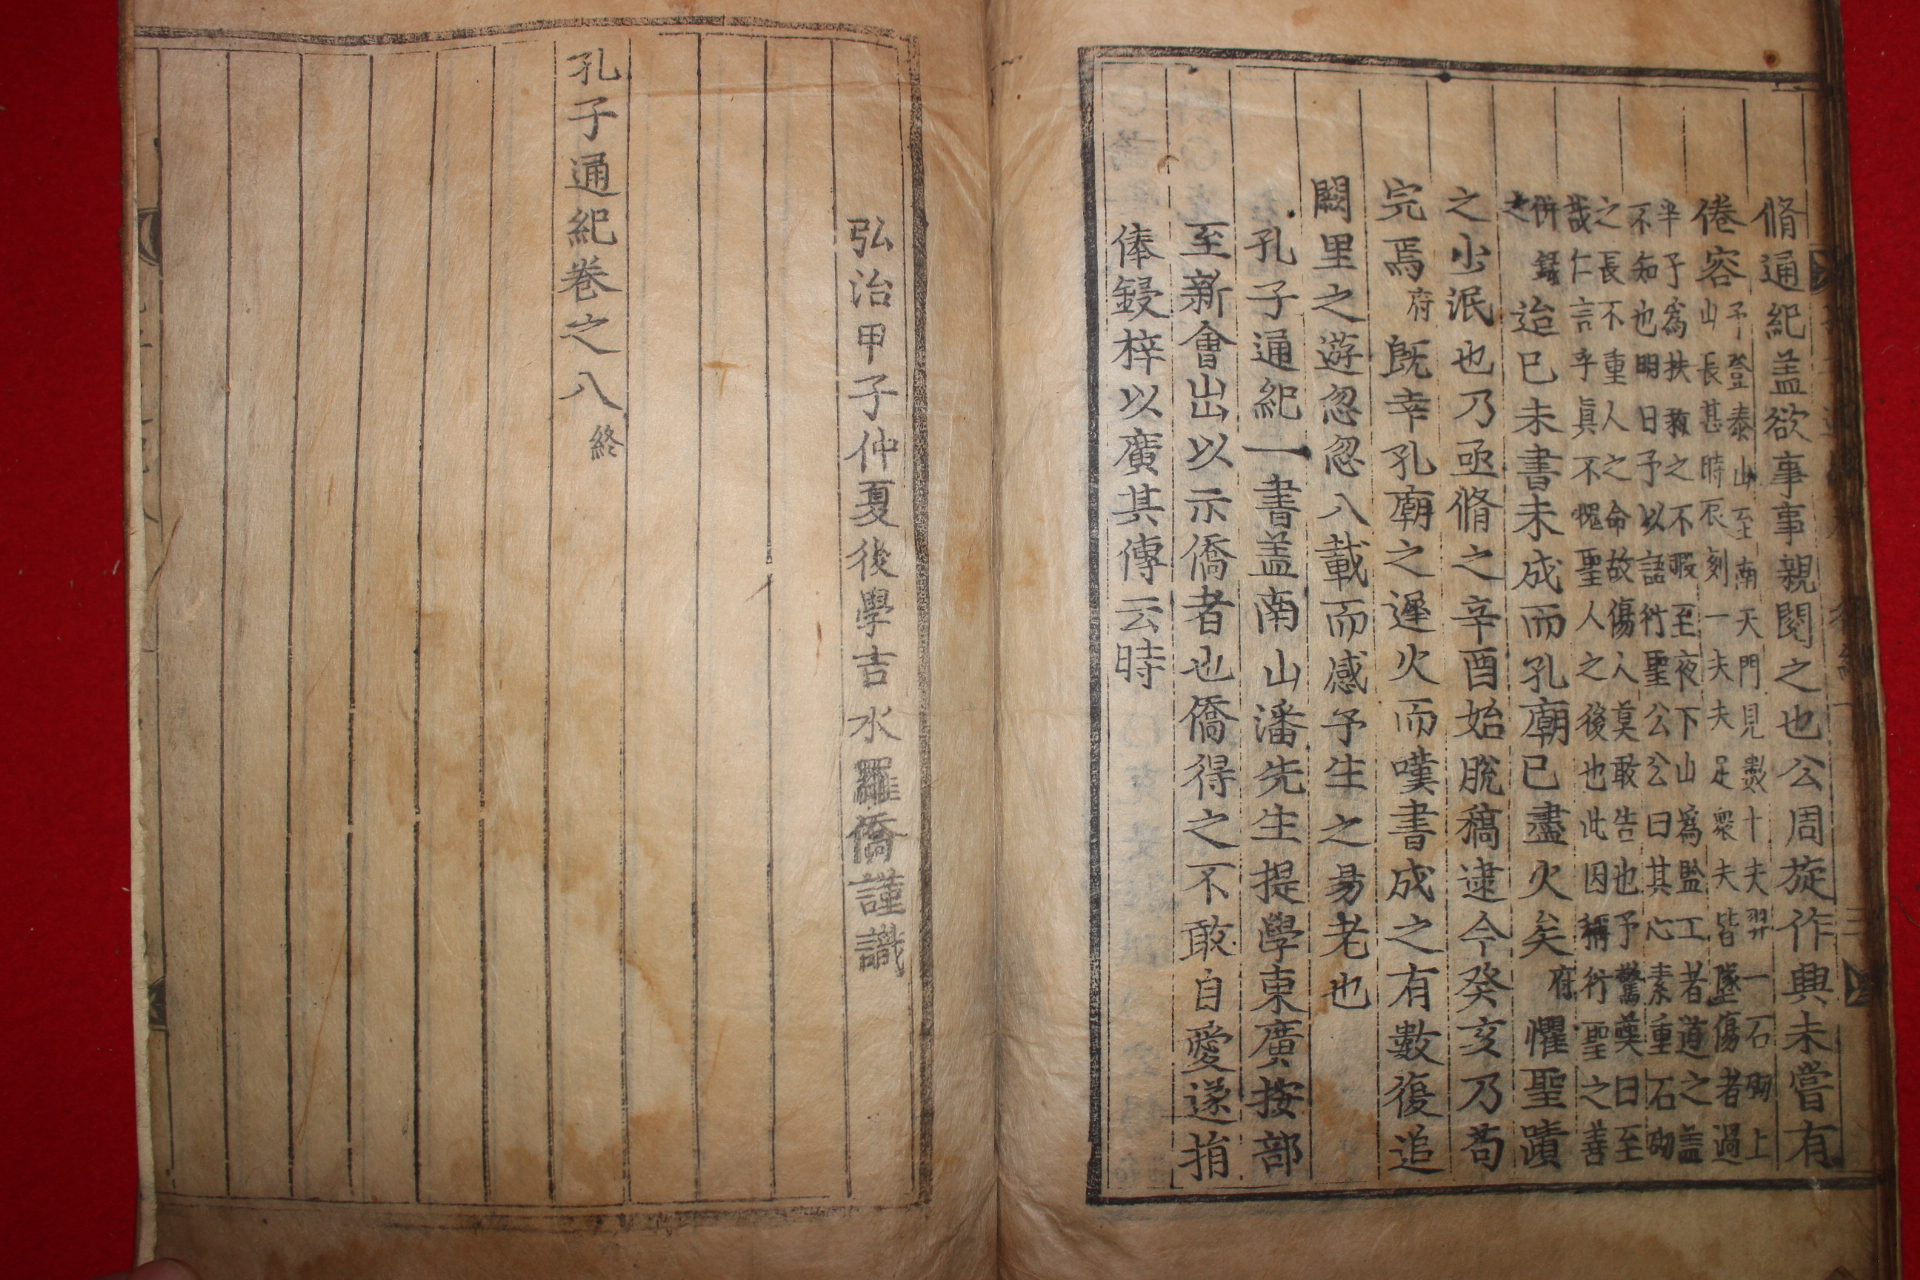 脩通紀盖欲事事親閱之也公周旋作興未嘗有
倦容予登泰山至南天門見數十夫羿一石硼上
山長甚時辰刻一夫夫足衆夫皆墜傷者過
半予爲扶救之不暇至夜下山爲監工者道之盖
不知也明日予以語衍聖公公曰其心素重石硼
之長不重人之命故傷人莫敢告也予驚嘆曰至
哉仁言乎眞不愧聖人之後也此因稱衍聖之善
併録之迨巳未書未成而孔廟已盡火矣府懼聖蹟
之少泯也乃亟脩之辛酉始脫稿逮今癸亥乃苟
完焉府旣幸孔廟之遲火而嘆書成之有數復追
闕里之遊忽忽八載而感予生之易老也
孔子通紀一書盖南山潘先生提學東廣按部
至新會出以示僑者也僑得之不敢自愛遂捐
俸鋟梓以廣其傳云時
弘治甲子仲夏後學吉水羅僑謹識
孔子通紀卷之八終